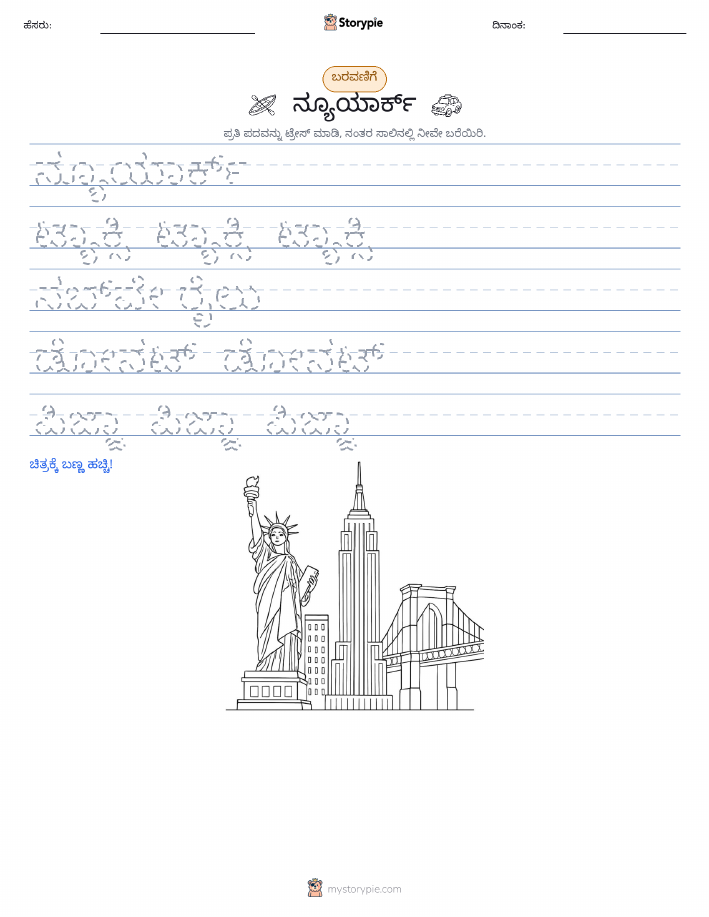 ಹೆಸರು: Storypie ದಿನಾಂಕ:
ಬರವಣಿಗೆ
ನ್ಯೂಯಾರ್ಕ್
ಪ್ರತಿ ಪದವನ್ನು ಟ್ರೇಸ್ ಮಾಡಿ, ನಂತರ ಸಾಲಿನಲ್ಲಿ ನೀವೇ ಬರೆಯಿರಿ.
ನ್ಯೂಯಾರ್ಕ್
ಟ್ಯಾಕ್ಸಿ ಟ್ಯಾಕ್ಸಿ ಟ್ಯಾಕ್ಸಿ
ಸಬ್‌ವೇ ರೈಲು
ಡೋನಟ್ ಡೋನಟ್
ಪಿಜ್ಜಾ ಪಿಜ್ಜಾ ಪಿಜ್ಜಾ
ಚಿತ್ರಕ್ಕೆ ಬಣ್ಣ ಹಚ್ಚಿ!
mystorypie.com